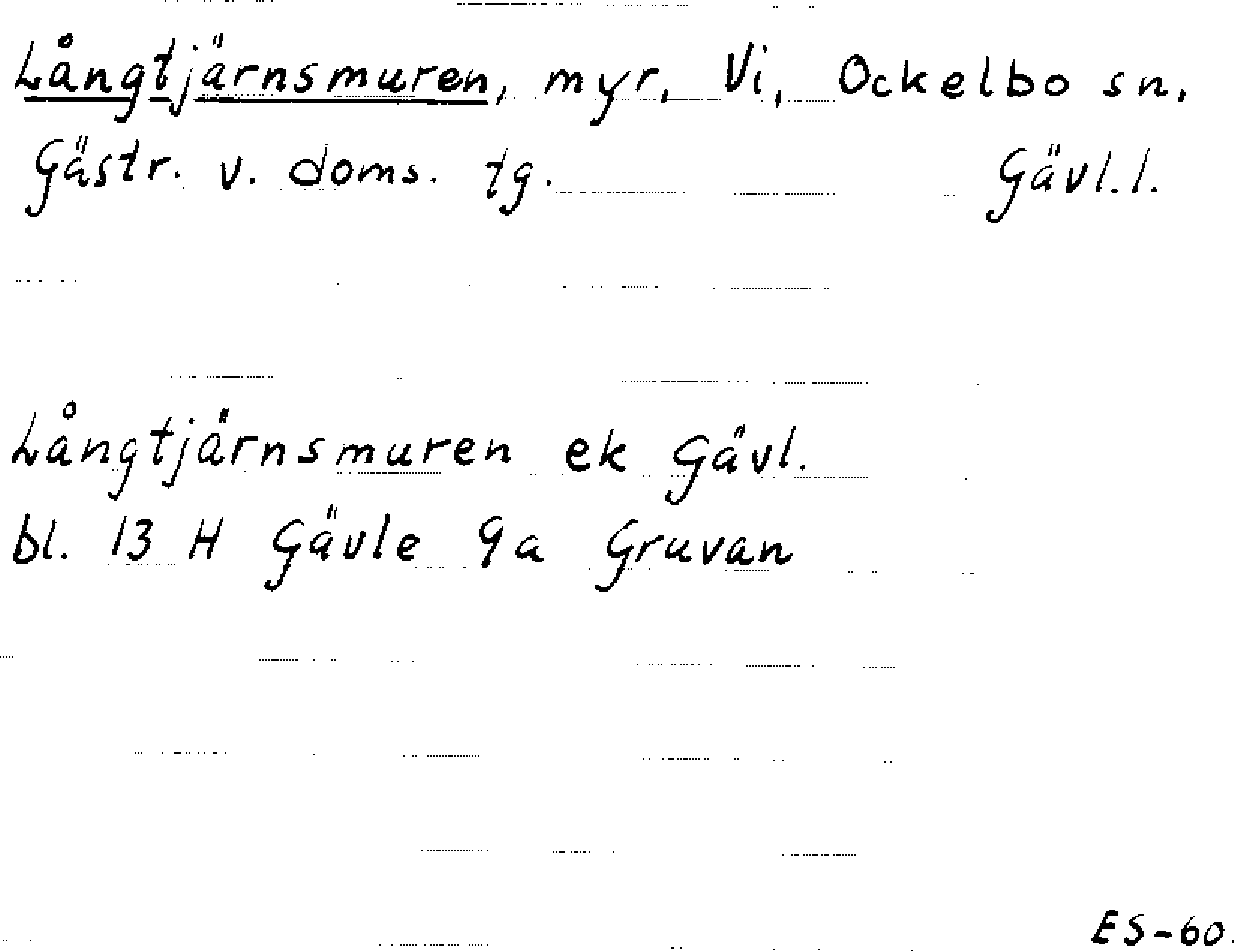 Långtjärnsmuren, myr, Vi, Ockelbo sn,
Gästr. v. doms. tg. Gävl. l.
Långtjärnsmuren ek Gävl.
bl. 13 H Gävle 9a Gruvan
ES-60.